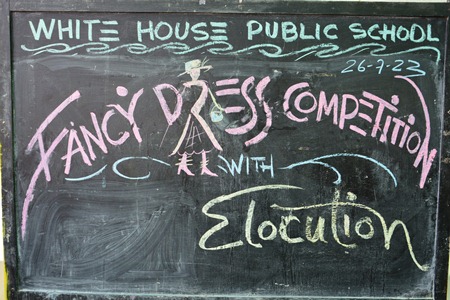 WHITE HOUSE PUBLIC SCHOOL
26-7-23
FANCY DRESS COMPETITION
WITH
Elocution